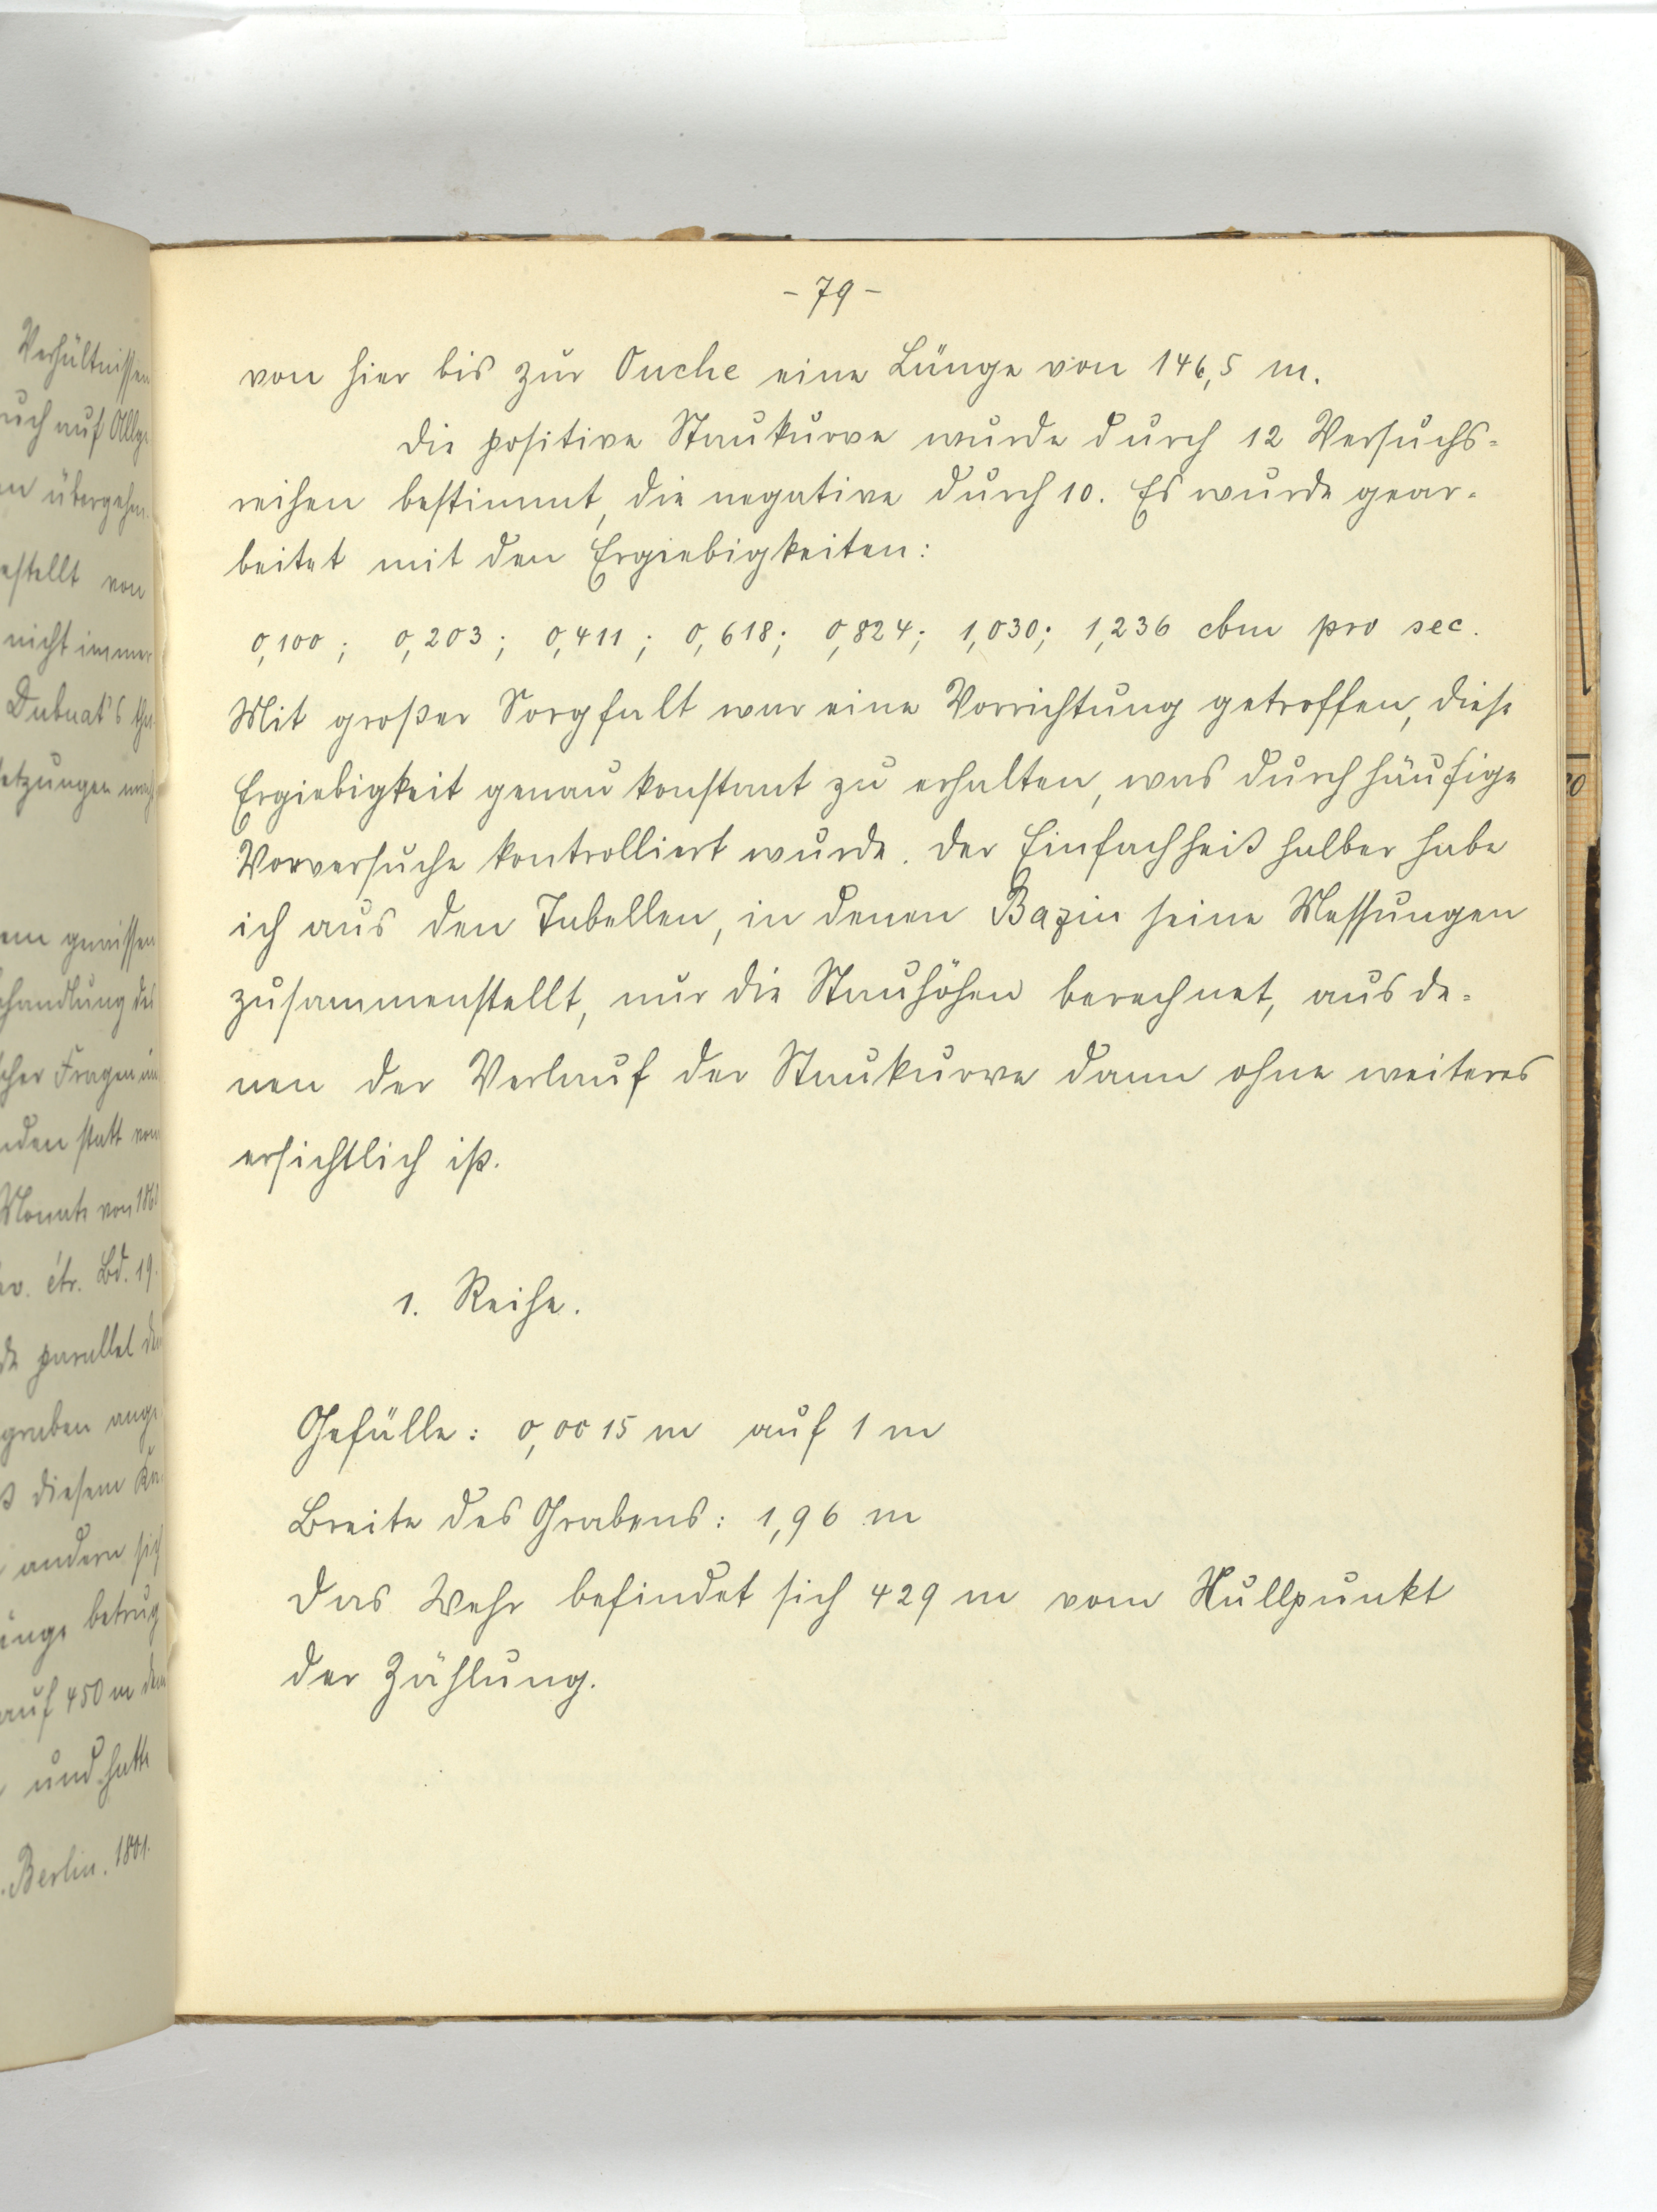 - 79 -
von hier bis zur Ouche eine Länge von 146,5 m.
Die positive Staukurve wurde durch 12 Versuchs=
reihen bestimmt, die negative durch 10. Es wurde gear=
beitet mit den Ergiebigkeiten:
0,100 ; 0,203 ; 0,411 ; 0,618; 0,824; 1,030; 1,236 cbm pro sec.
Mit großer Sorgfalt war eine Vorrichtung getroffen, diese
Ergiebigkeit genau konstant zu erhalten, was durch häufige
Vorversuche kontrolliert wurde. Der Einfachheit halber habe
ich aus den Tabellen, in denen Bazin seine Messungen
zusammenstellt, nur die Stauhöhen berechnet, aus de=
nen der Verlauf der Staukurve dann ohne weiteres
ersichtlich ist.
1. Reihe.
Gefälle: 0,0015 m auf 1 m
Breite des Grabens: 1,96 m
Das Wehr befindet sich 429 m vom Nullpunkt
der Zählung.
Verhältnissen
auf
übergehen
von
nicht immer
Dubuat's
gewissen
Fragen
statt von
Monats von
étr. Bd. 19.
parallel
diesem
andern
betrug
auf 450 m
und hatte
Berlin. 1801.